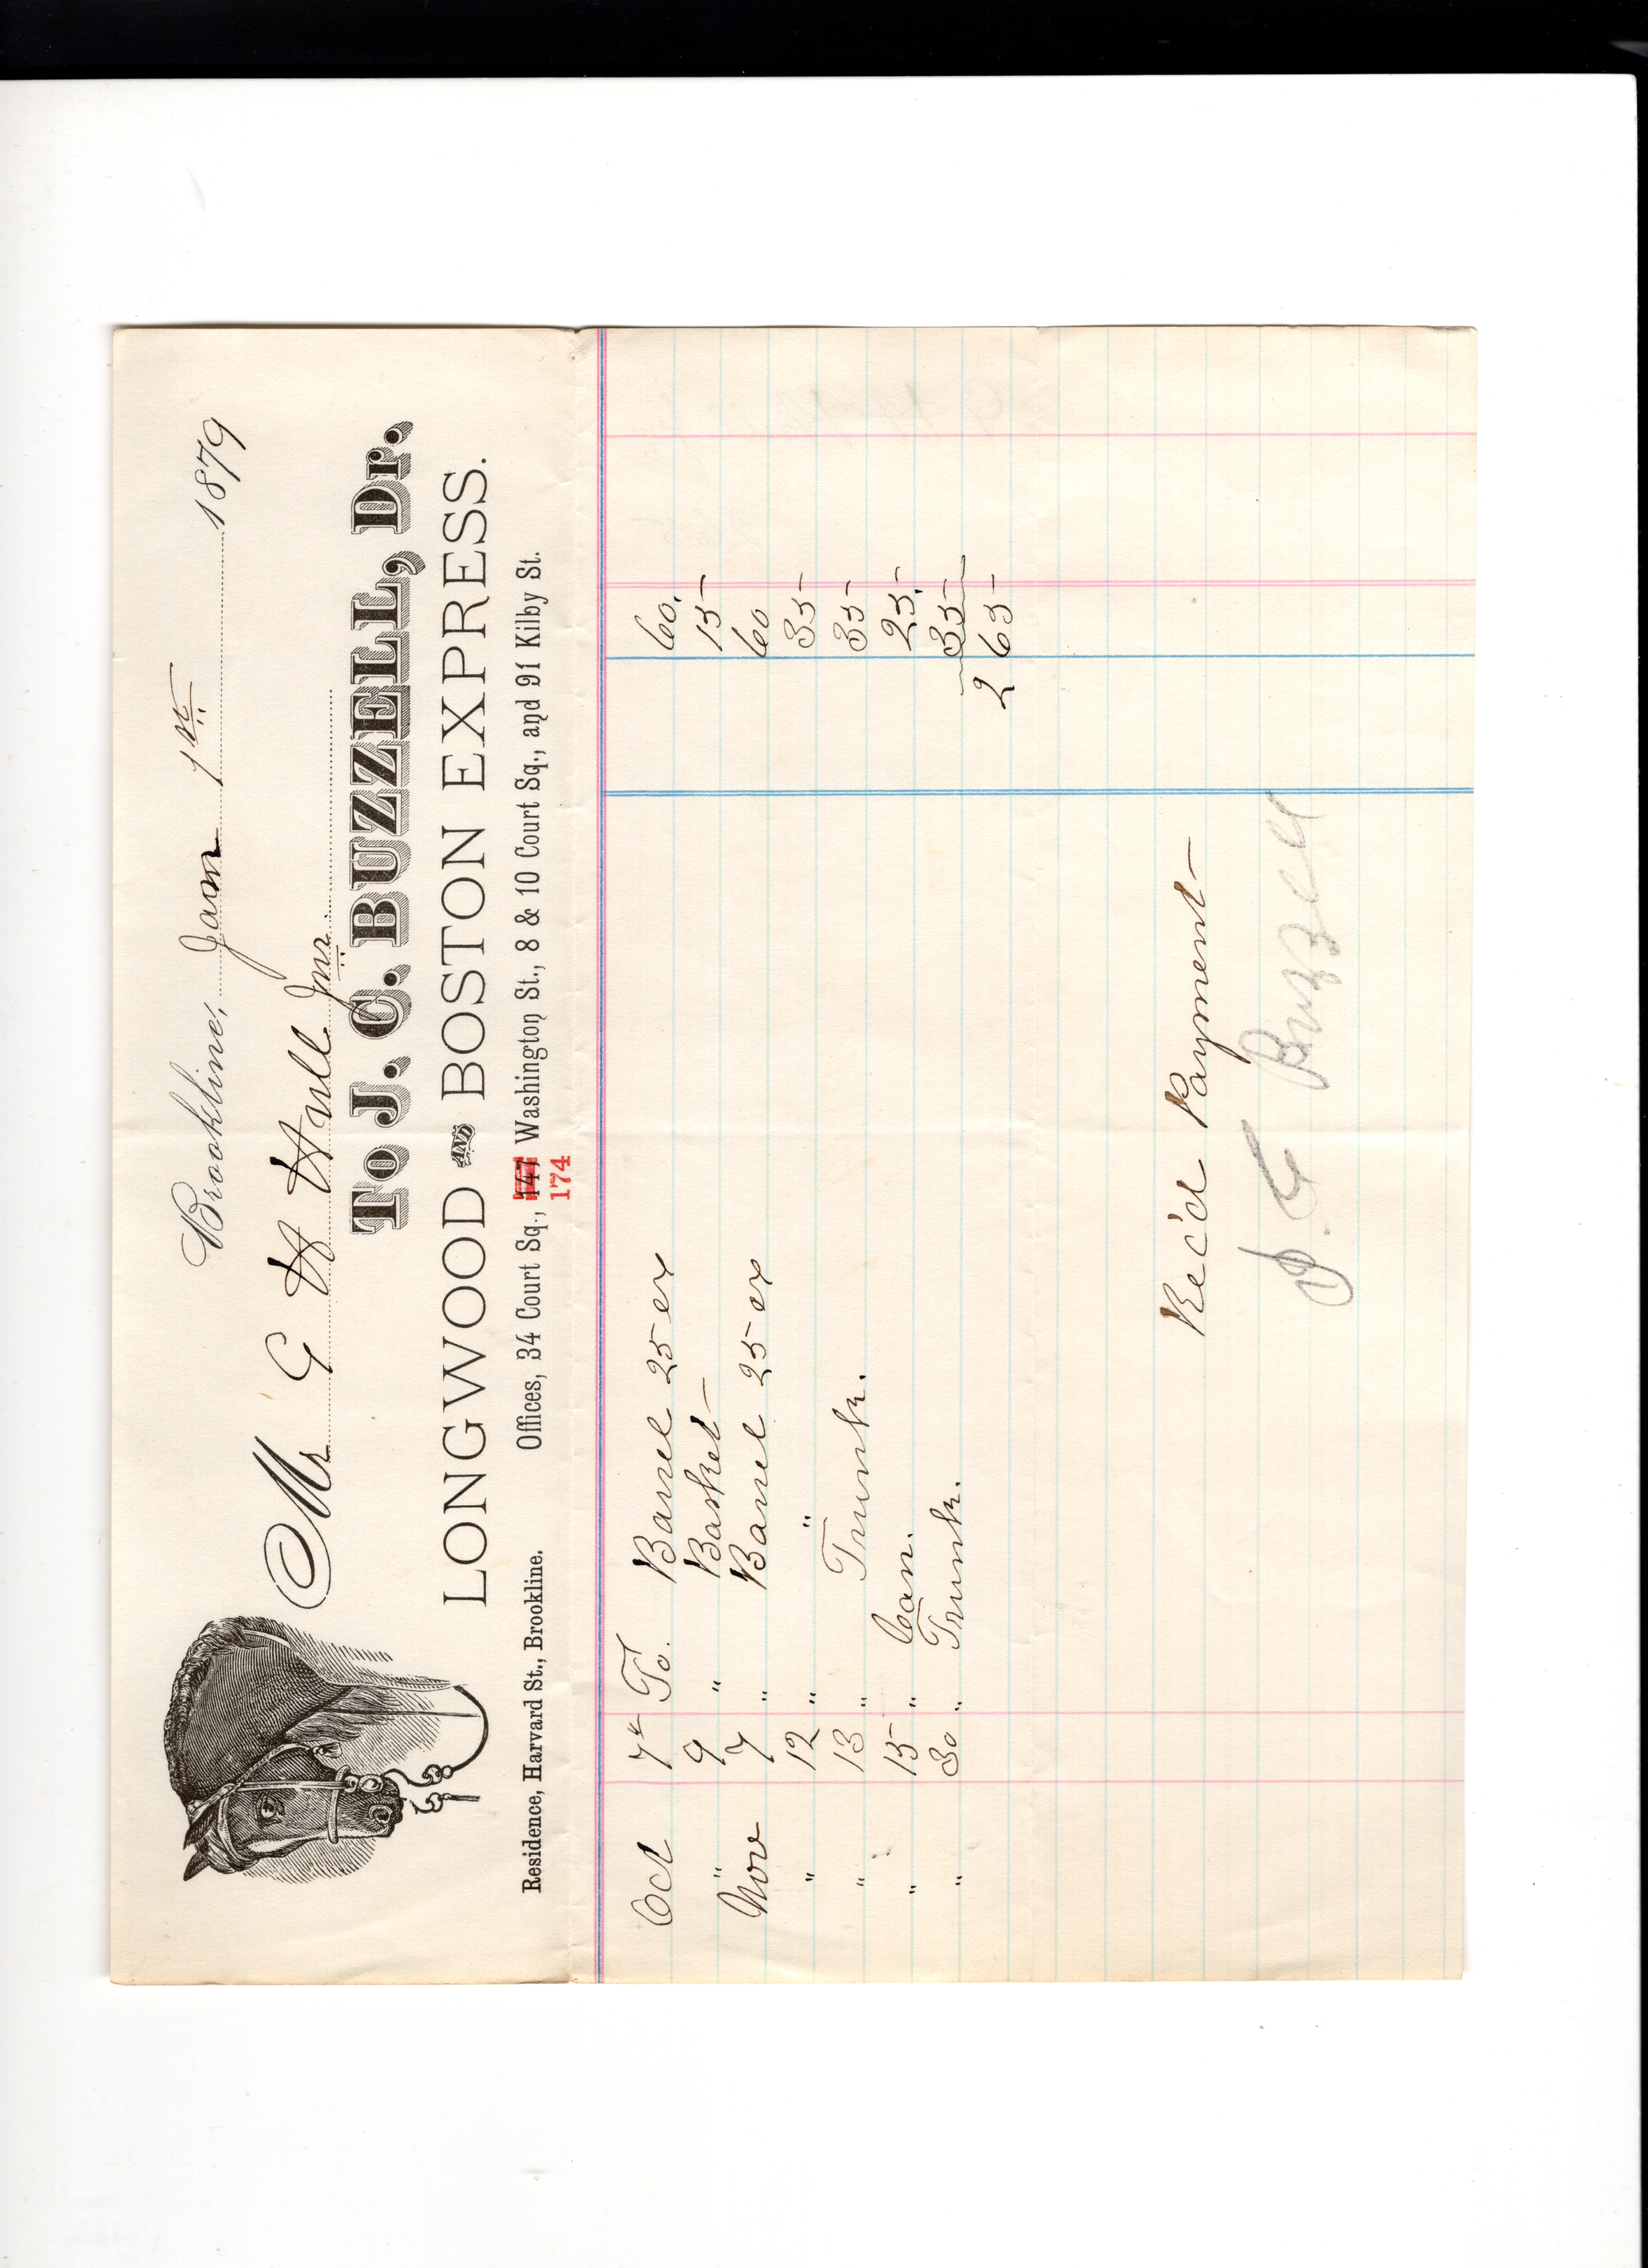 Brookline, Jan 1st 1879
Mr G W Hill Jnr.
To J. C. BUZZELL, Dr.
LONGWOOD AND BOSTON EXPRESS.
Residence, Harvard St., Brookline. Offices, 34 Court Sq., 147 Washington St., 8 & 10 Court Sq., and 91 Kilby St.
174
Oct 7th To. Barrel 25 ex 60.
" 9 " Basket 15
Nov 7 " Barrel 25 ex 60
" 12 " " 35
" 13 " Trunk. 35
" 15 " Can. 25.
" 30 " Trunk. 35
2 65
Rec'd Payment
J. C Buzzell